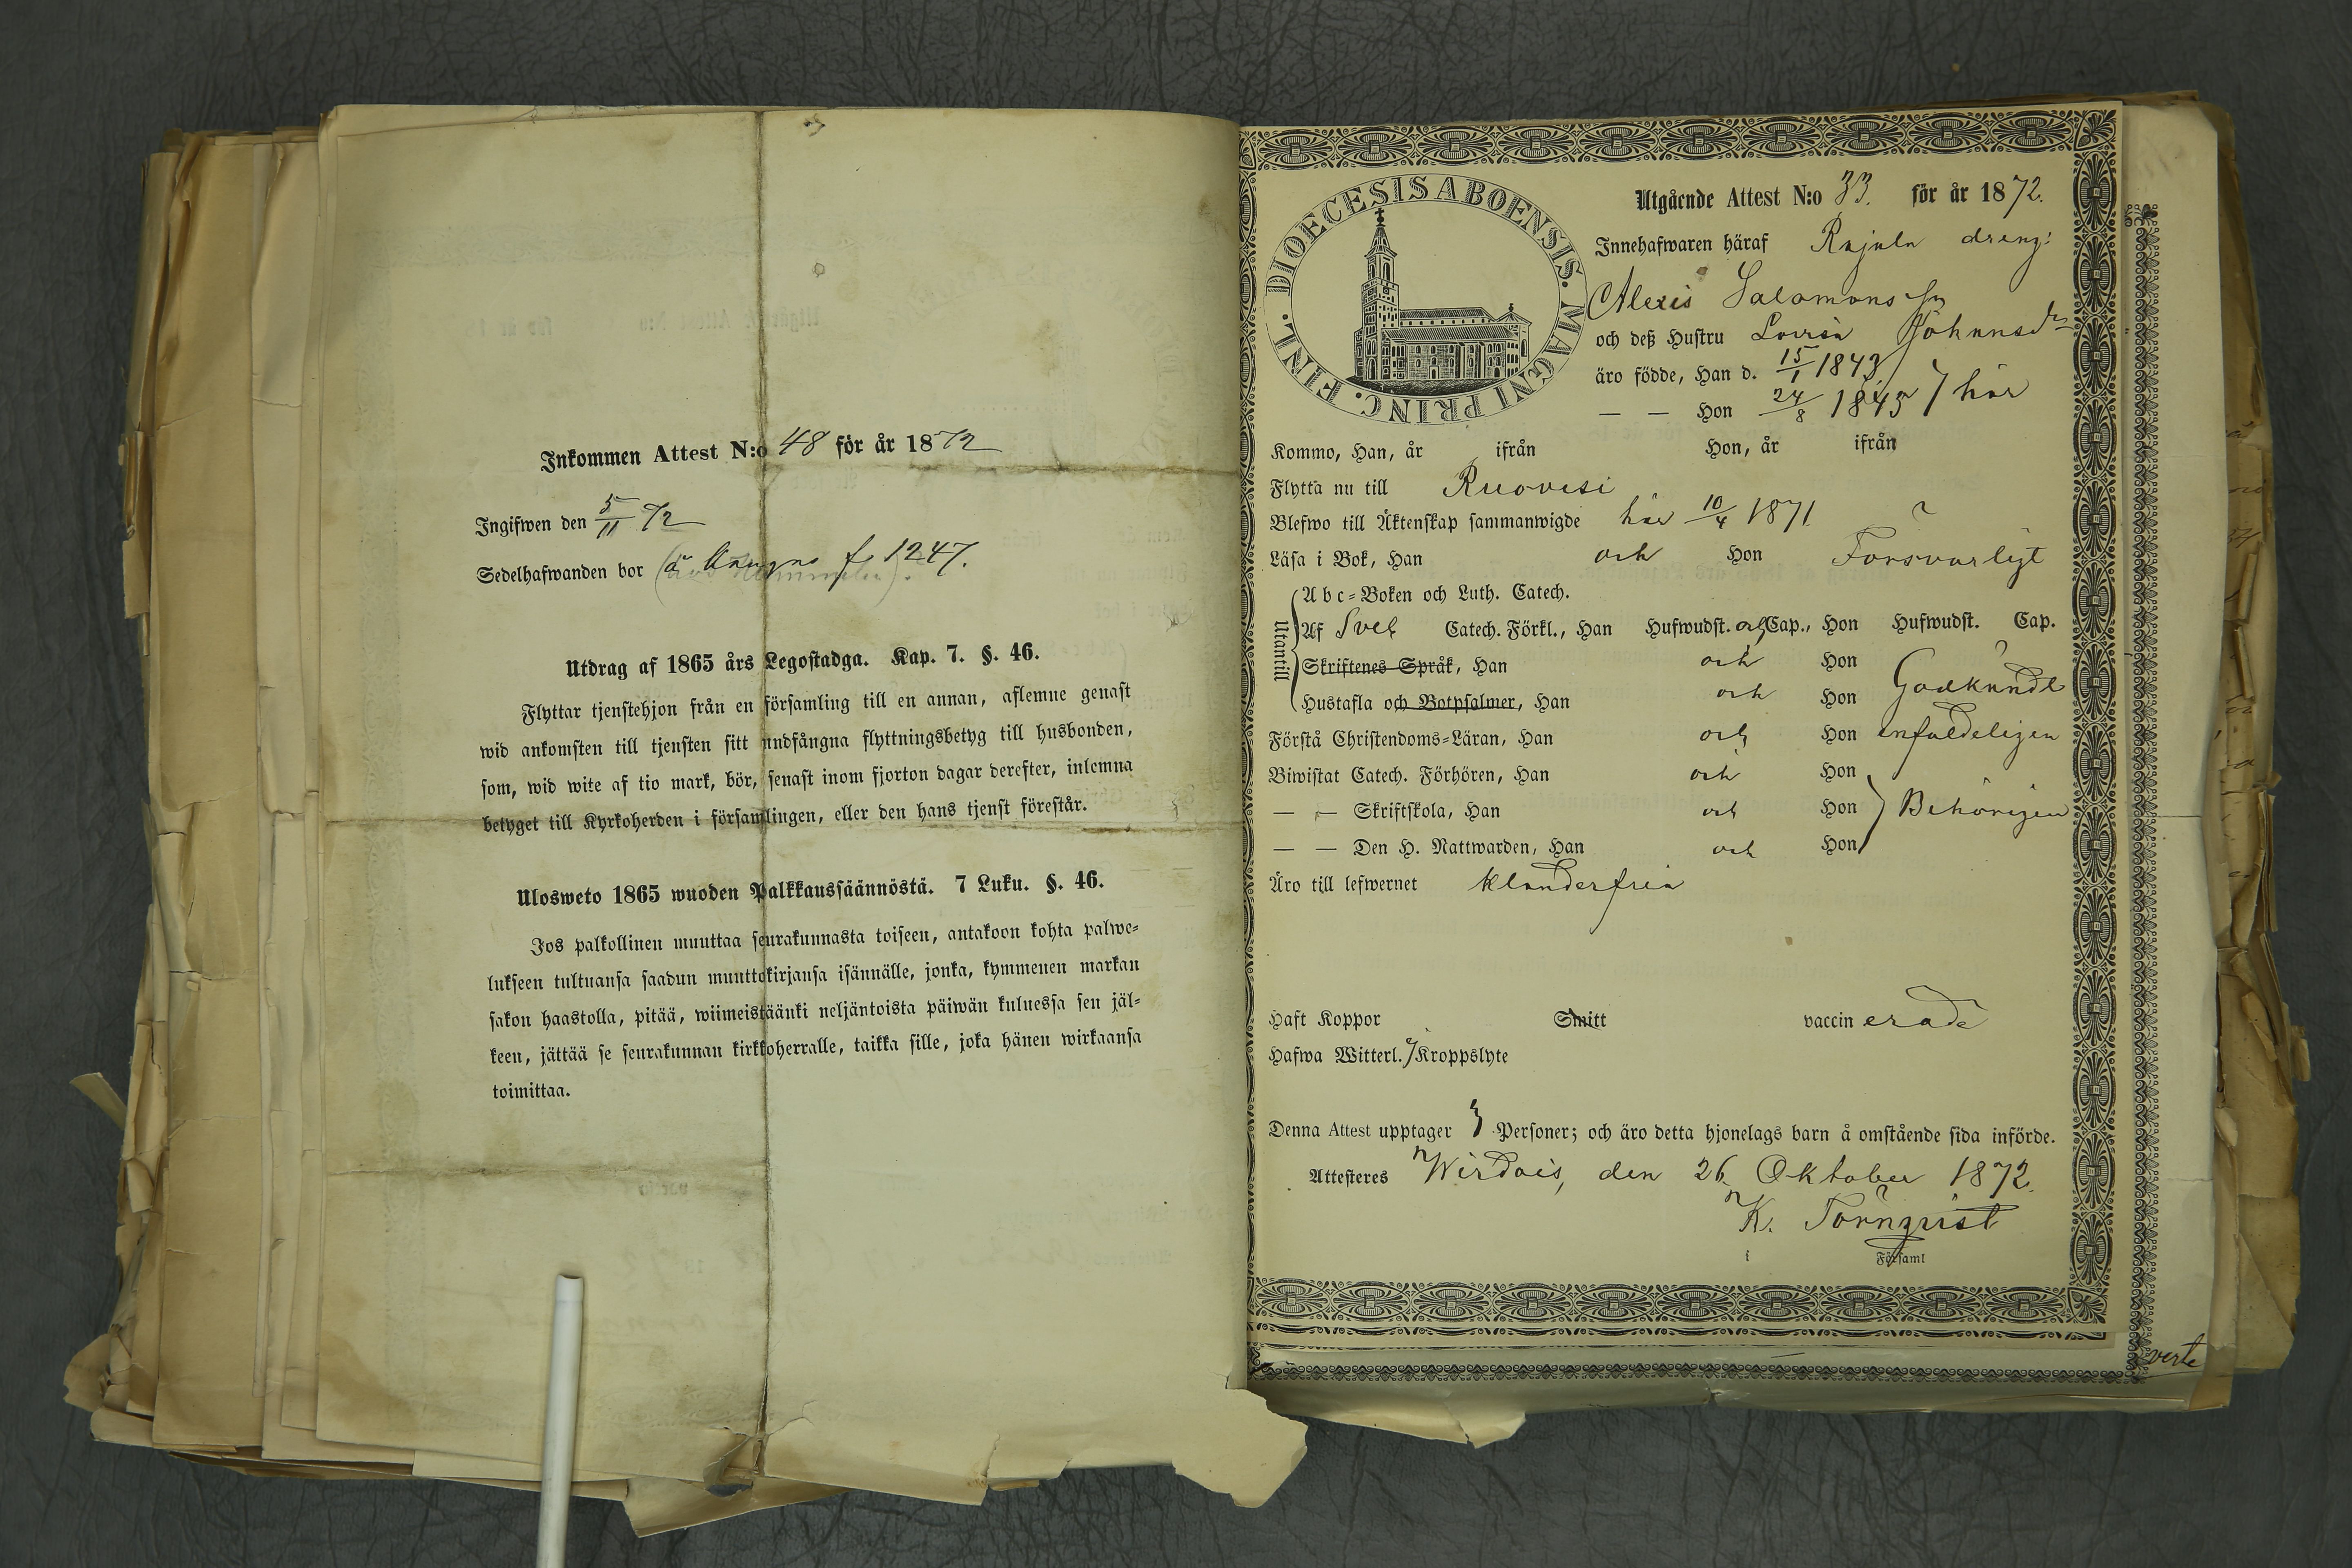 Inkommen Attest N:o 48 för år 1872
Ingifwen den 5/11 72
Sedelhafwanden bor å f 1247.
Utdrag af 1865 års Legostadga. Kap. 7. §. 46.
Flyttar tjenstehjon från en församling till en annan, aflemne genast
wid ankomsten till tjensten sitt undfångna flyttningsbetyg till husbonden,
som, wid wite af tio mark, bör, senast inom fjorton dagar derefter, inlemna
betyget till Kyrkoherden i församlingen, eller den hans tjenst förestår.
Ulosweto 1865 wuoden Palkkaussäännöstä. 7 Luku. §. 46.
Jos palkollinen muuttaa seurakunnasta toiseen, antakoon kohta palwe-
lukseen tultuansa saadun muuttokirjansa isännälle, jonka, kymmenen markan
sakon haastolla, pitää, wiimeistäänki neljäntoista päiwän kuluessa sen jäl-
keen, jättää se seurakunnan kirkkoherralle, taikka sille, joka hänen wirkaansa
toimittaa.
DIOECESIS ABOENSIS. MAGNI PRINC. FINL.
Utgående Attest N:o 33. för år 1872.
Innehafwaren häraf Rajala dreng:
Alexis Salomonsson
och deß Hustru Lovisa Johansdr
äro födde, Han d. 15/1 1843
— — Hon 24/8 1845 } här
Kommo, Han, år ifrån Hon, år ifrån
Flytta nu till Ruovesi
Blefwo till Äktenskap sammanwigde här 10/4 1871
Läsa i Bok, Han och Hon Försvarligt
Utantill
Abc-Boken och Luth. Catech.
Af Sveb Catech. Förkl., Han Hufwudst. och Cap., Hon Hufwudst. Cap.
Skriftenes Språk, Han och Hon
Hustafla och Botpsalmer, Han och Hon Godkändt
Förstå Christendoms-Läran, Han och Hon enfaldeligen
Biwistat Catech. Förhören, Han och Hon
— — Skriftskola, Han och Hon } Behörigen
— — Den H. Nattwarden, Han och Hon
Äro till lefwernet klanderfria
Haft Koppor Smitt vaccinerade
Hafwa Witterl. ej Kroppslyte
Denna Attest upptager 3 Personer; och äro detta hjonelags barn å omstående sida införde.
Attesteres Wirdois, den 26 Oktober 1872.
K. Törnqvist
i Församl
verte